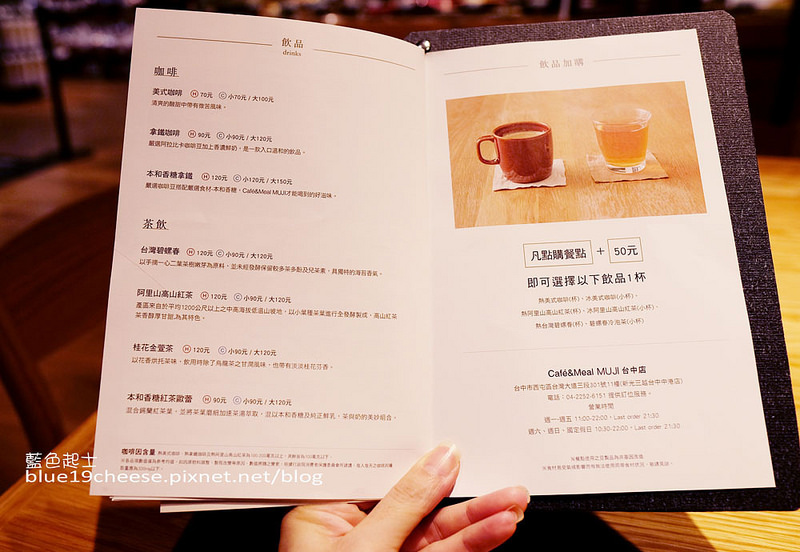 飲品
drinks
咖啡
美式咖啡 H 70元 C 小70元 / 大100元
清爽的酸甜中帶有微苦風味。
拿鐵咖啡 H 90元 C 小90元 / 大120元
嚴選阿拉比卡咖啡豆加上香濃鮮奶，是一款入口溫和的飲品。
本和香糖拿鐵 H 120元 C 小120元 / 大150元
嚴選咖啡豆搭配嚴選食材-本和香糖，Café&Meal MUJI才能喝到的好滋味。
茶飲
台灣碧螺春 H 120元 C 小90元 / 大120元
以手摘一心二葉茶樹嫩芽為原料，並未經發酵保留較多茶多酚及兒茶素，具獨特的海苔香氣。
阿里山高山紅茶 H 120元 C 小90元 / 大120元
產區來自於平均1200公尺以上之中高海拔低溫山坡地，以小葉種茶葉進行全發酵製成，高山紅茶
茶香醇厚甘甜,為其特色。
桂花金萱茶 H 120元 C 小90元 / 大120元
以花香烘托茶味，飲用時除了烏龍茶之甘潤風味，也帶有淡淡桂花芬香。
本和香糖紅茶歐蕾 H 90元 C 小90元 / 大120元
混合錫蘭紅茶葉，並將茶葉磨細加速茶湯萃取，混以本和香糖及純正鮮乳，茶與奶的美妙組合。
咖啡因含量
飲品加購
凡點購餐點 + 50元
即可選擇以下飲品1杯
熱美式咖啡(杯)、冰美式咖啡(小杯)、
熱阿里山高山紅茶(杯)、冰阿里山高山紅茶(小杯)、
熱台灣碧螺春(杯)、碧螺春冷泡茶(小杯)
Café&Meal MUJI 台中店
台中市西屯區台灣大道三段301號11樓(新光三越台中中港店)
電話：04-2252-6151 提供訂位服務。
營業時間
週一-週五 11:00-22:00, Last order 21:30
週六、週日、國定假日 10:30-22:00, Last order 21:30
藍色起士
blue19cheese.pixnet.net/blog